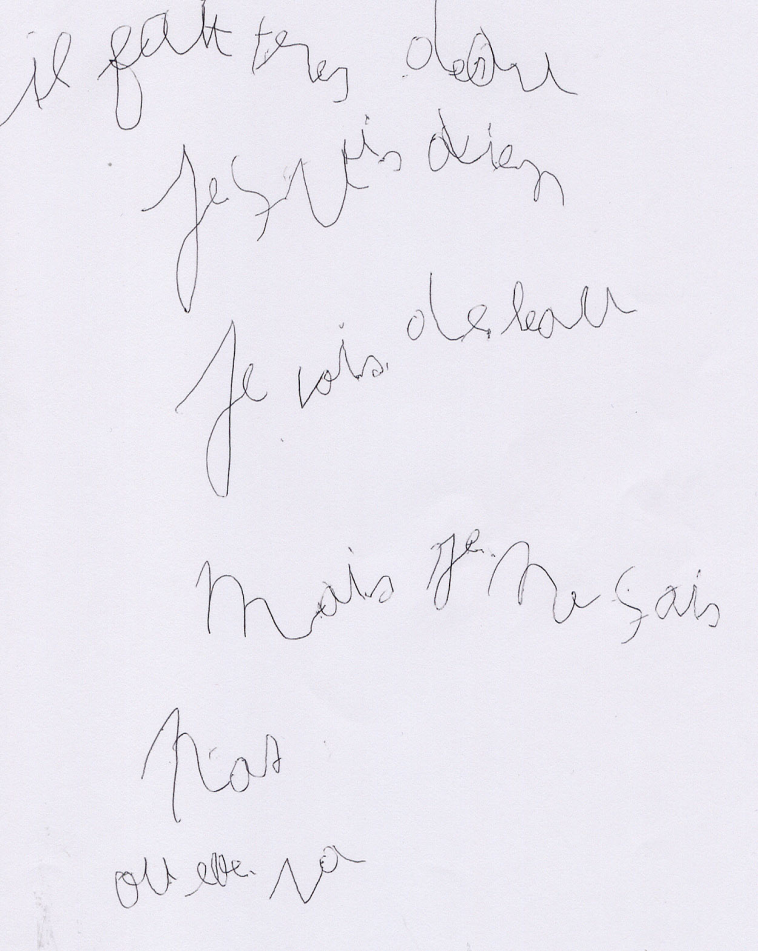 il fait tres deau
Je suis dien
Je vois de leau
Mais Je ne sais
Pas
ou elle va